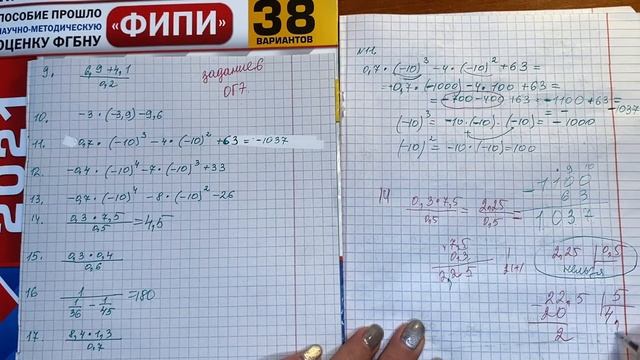 ПОСОБИЕ ПРОШЛО
НАУЧНО-МЕТОДИЧЕСКУЮ
ОЦЕНКУ ФГБНУ
«ФИПИ»
38
ВАРИАНТОВ
2021
задание 6
ОГЭ
9. (6,9+4,1)/0,2
10. -3·(-3,9)-9,6
11. 0,7·(-10)³-4·(-10)²+63=-1037
12. -0,4·(-10)⁴-7·(-10)³+33
13. -0,7·(-10)⁴-8·(-10)²-26
14. (0,3·7,5)/0,5=4,5
15. (0,3·0,4)/0,6
16 1/(1/36-1/45)=180
17. (8,4·1,3)/0,7
N11.
0,7·(-10)³-4·(-10)²+63=
=-0,7·(-1000)-4·100+63=
=-700-400+63=-1100+63=-1037
(-10)³=-10·(-10)·(-10)=-1000
(-10)²=-10·(-10)=100
1100
63
1037
14 (0,3·7,5)/0,5=2,25/0,5=
7,5
0,3
2,25
2,25 0,5
нельзя
22,5 5
20 4,
2